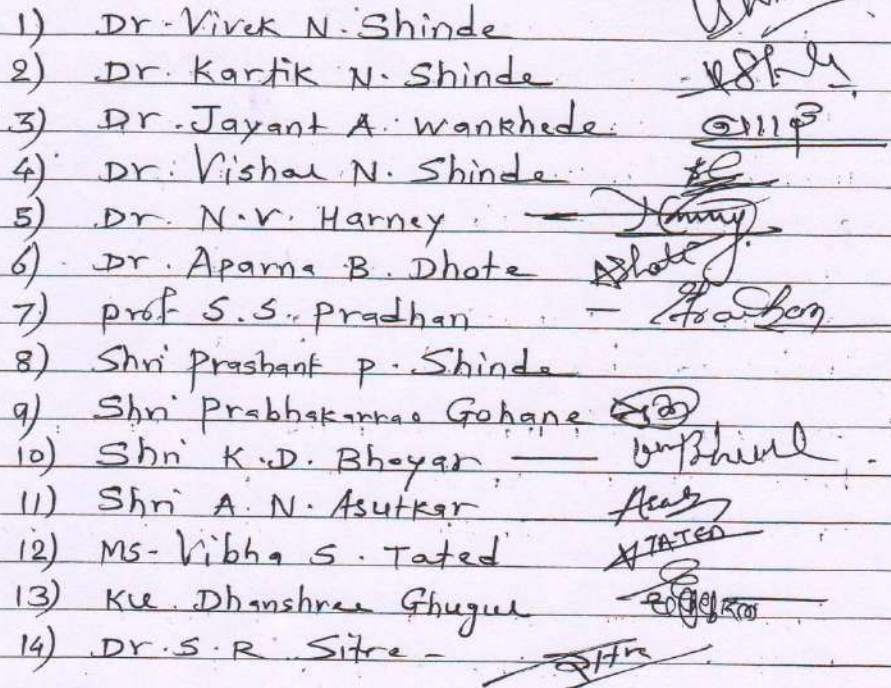 1) Dr. Vivek N. Shinde
2) Dr. Kartik N. Shinde
3) Dr. Jayant A. Wankhede
4) Dr. Vishal N. Shinde
5) Dr. N.V. Harney
6) Dr. Aparna B. Dhote ADhote
7) prof S.S. Pradhan - Pradhan
8) Shri Prashant P. Shinde
9) Shri Prabhakarrao Gohane
10) Shri K.D. Bhoyar —
11) Shri A. N. Asutkar
12) Ms- Vibha S. Tated TATED
13) Ku. Dhanshree Ghugul
14) Dr. S. R Sitre -